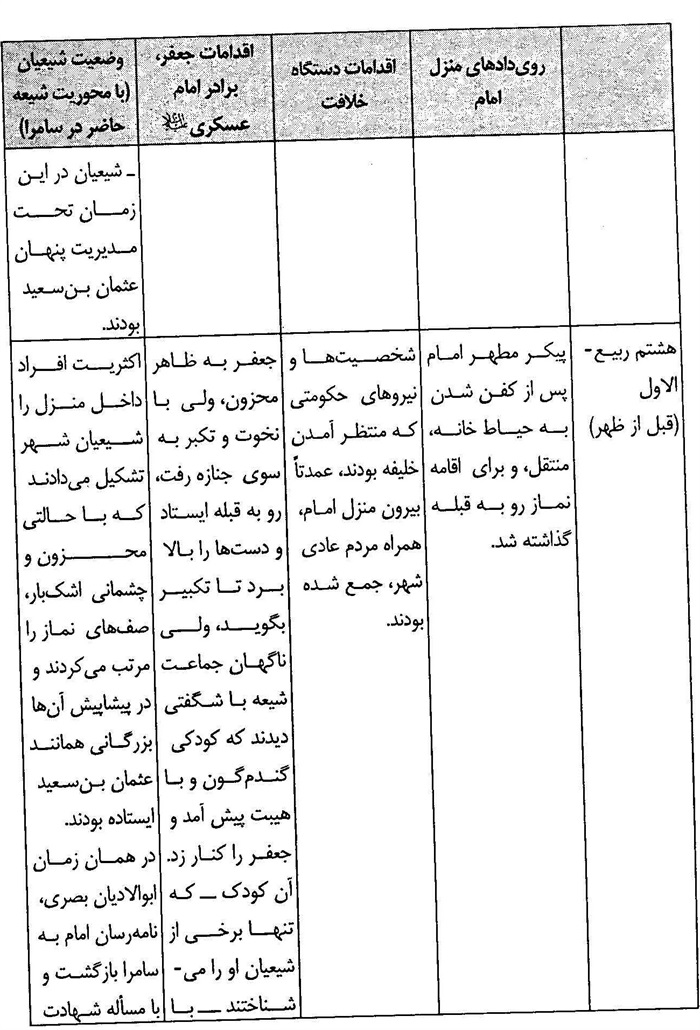 روی‌دادهای منزل
امام
اقدامات دستگاه
خلافت
اقدامات جعفر،
برادر امام
عسکری
وضعیت شیعیان
(با محوریت شیعه
حاضر در سامرا)
ـ شیعیان در این
زمان تحت
مدیریت پنهان
عثمان بن‌سعید
بودند.
هشتم ربیع-
الاول
(قبل از ظهر)
پیکر مطهر امام
پس از کفن شدن
به حیاط خانه،
منتقل، و برای اقامه
نماز رو به قبله
گذاشته شد.
شخصیت‌ها و
نیروهای حکومتی
که منتظر آمدن
خلیفه بودند، عمدتاً
بیرون منزل امام،
همراه مردم عادی
شهر، جمع شده
بودند.
جعفر به ظاهر
محزون، ولی با
نخوت و تکبر به
سوی جنازه رفت،
رو به قبله ایستاد
و دست‌ها را بالا
برد تا تکبیر
بگوید، ولی
ناگهان جماعت
شیعه با شگفتی
دیدند که کودکی
گندم‌گون و با
هیبت پیش آمد و
جعفر را کنار زد.
آن کودک ـ که
تنها برخی از
شیعیان او را می-
شناختند ـ با
اکثریت افراد
داخل منزل را
شیعیان شهر
تشکیل می‌دادند
که با حالتی
محزون و
چشمانی اشک‌بار،
صف‌های نماز را
مرتب می‌کردند و
در پیشاپیش آن‌ها
بزرگانی همانند
عثمان بن‌سعید
ایستاده بودند.
در همان زمان
ابوالادیان بصری،
نامه‌رسان امام به
سامرا بازگشت و
با مسأله شهادت